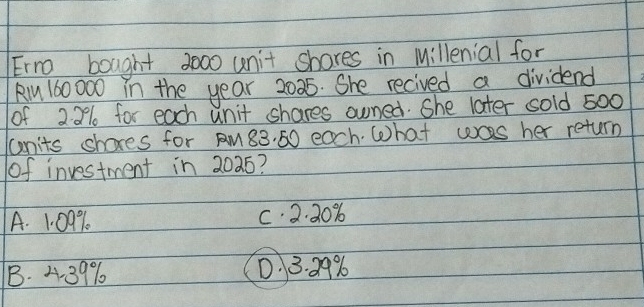 Erno bought 2000 unit shares in Millenial for
RM 160 000 in the year 2025. She recived a dividend
of 2.2% for each unit shares owned. She later sold 500
units shares for RM 83.50 each. What was her return
of investment in 2025?
A. 1.09% C. 2.20%
B. 4.39% D. 3.29%